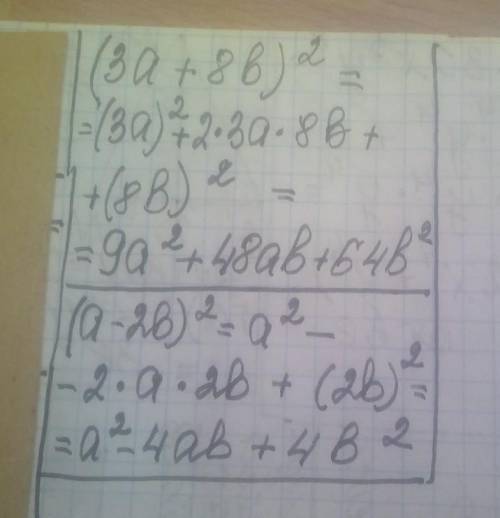 (3a + 8b)² =
= (3a)² + 2·3a·8b +
+ (8b)² =
= 9a² + 48ab + 64b²
(a - 2b)² = a² -
- 2·a·2b + (2b)² =
= a² - 4ab + 4b²